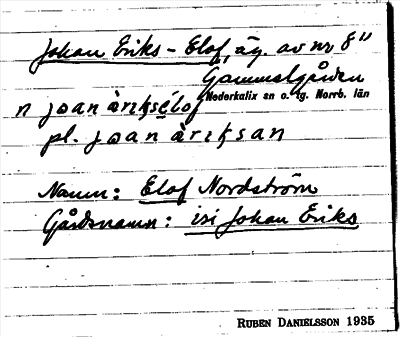 Johan Eriks - Elof, äg. av nr 8"
Gammelgården
Nederkalix sn o. tg. Norrb. län
n jɷan àrıkséìof
pl. jɷan àrıksan
Namn: Elof Nordström
Gårdsnamn: isi Johan Eriks
RUBEN DANIELSSON 1935